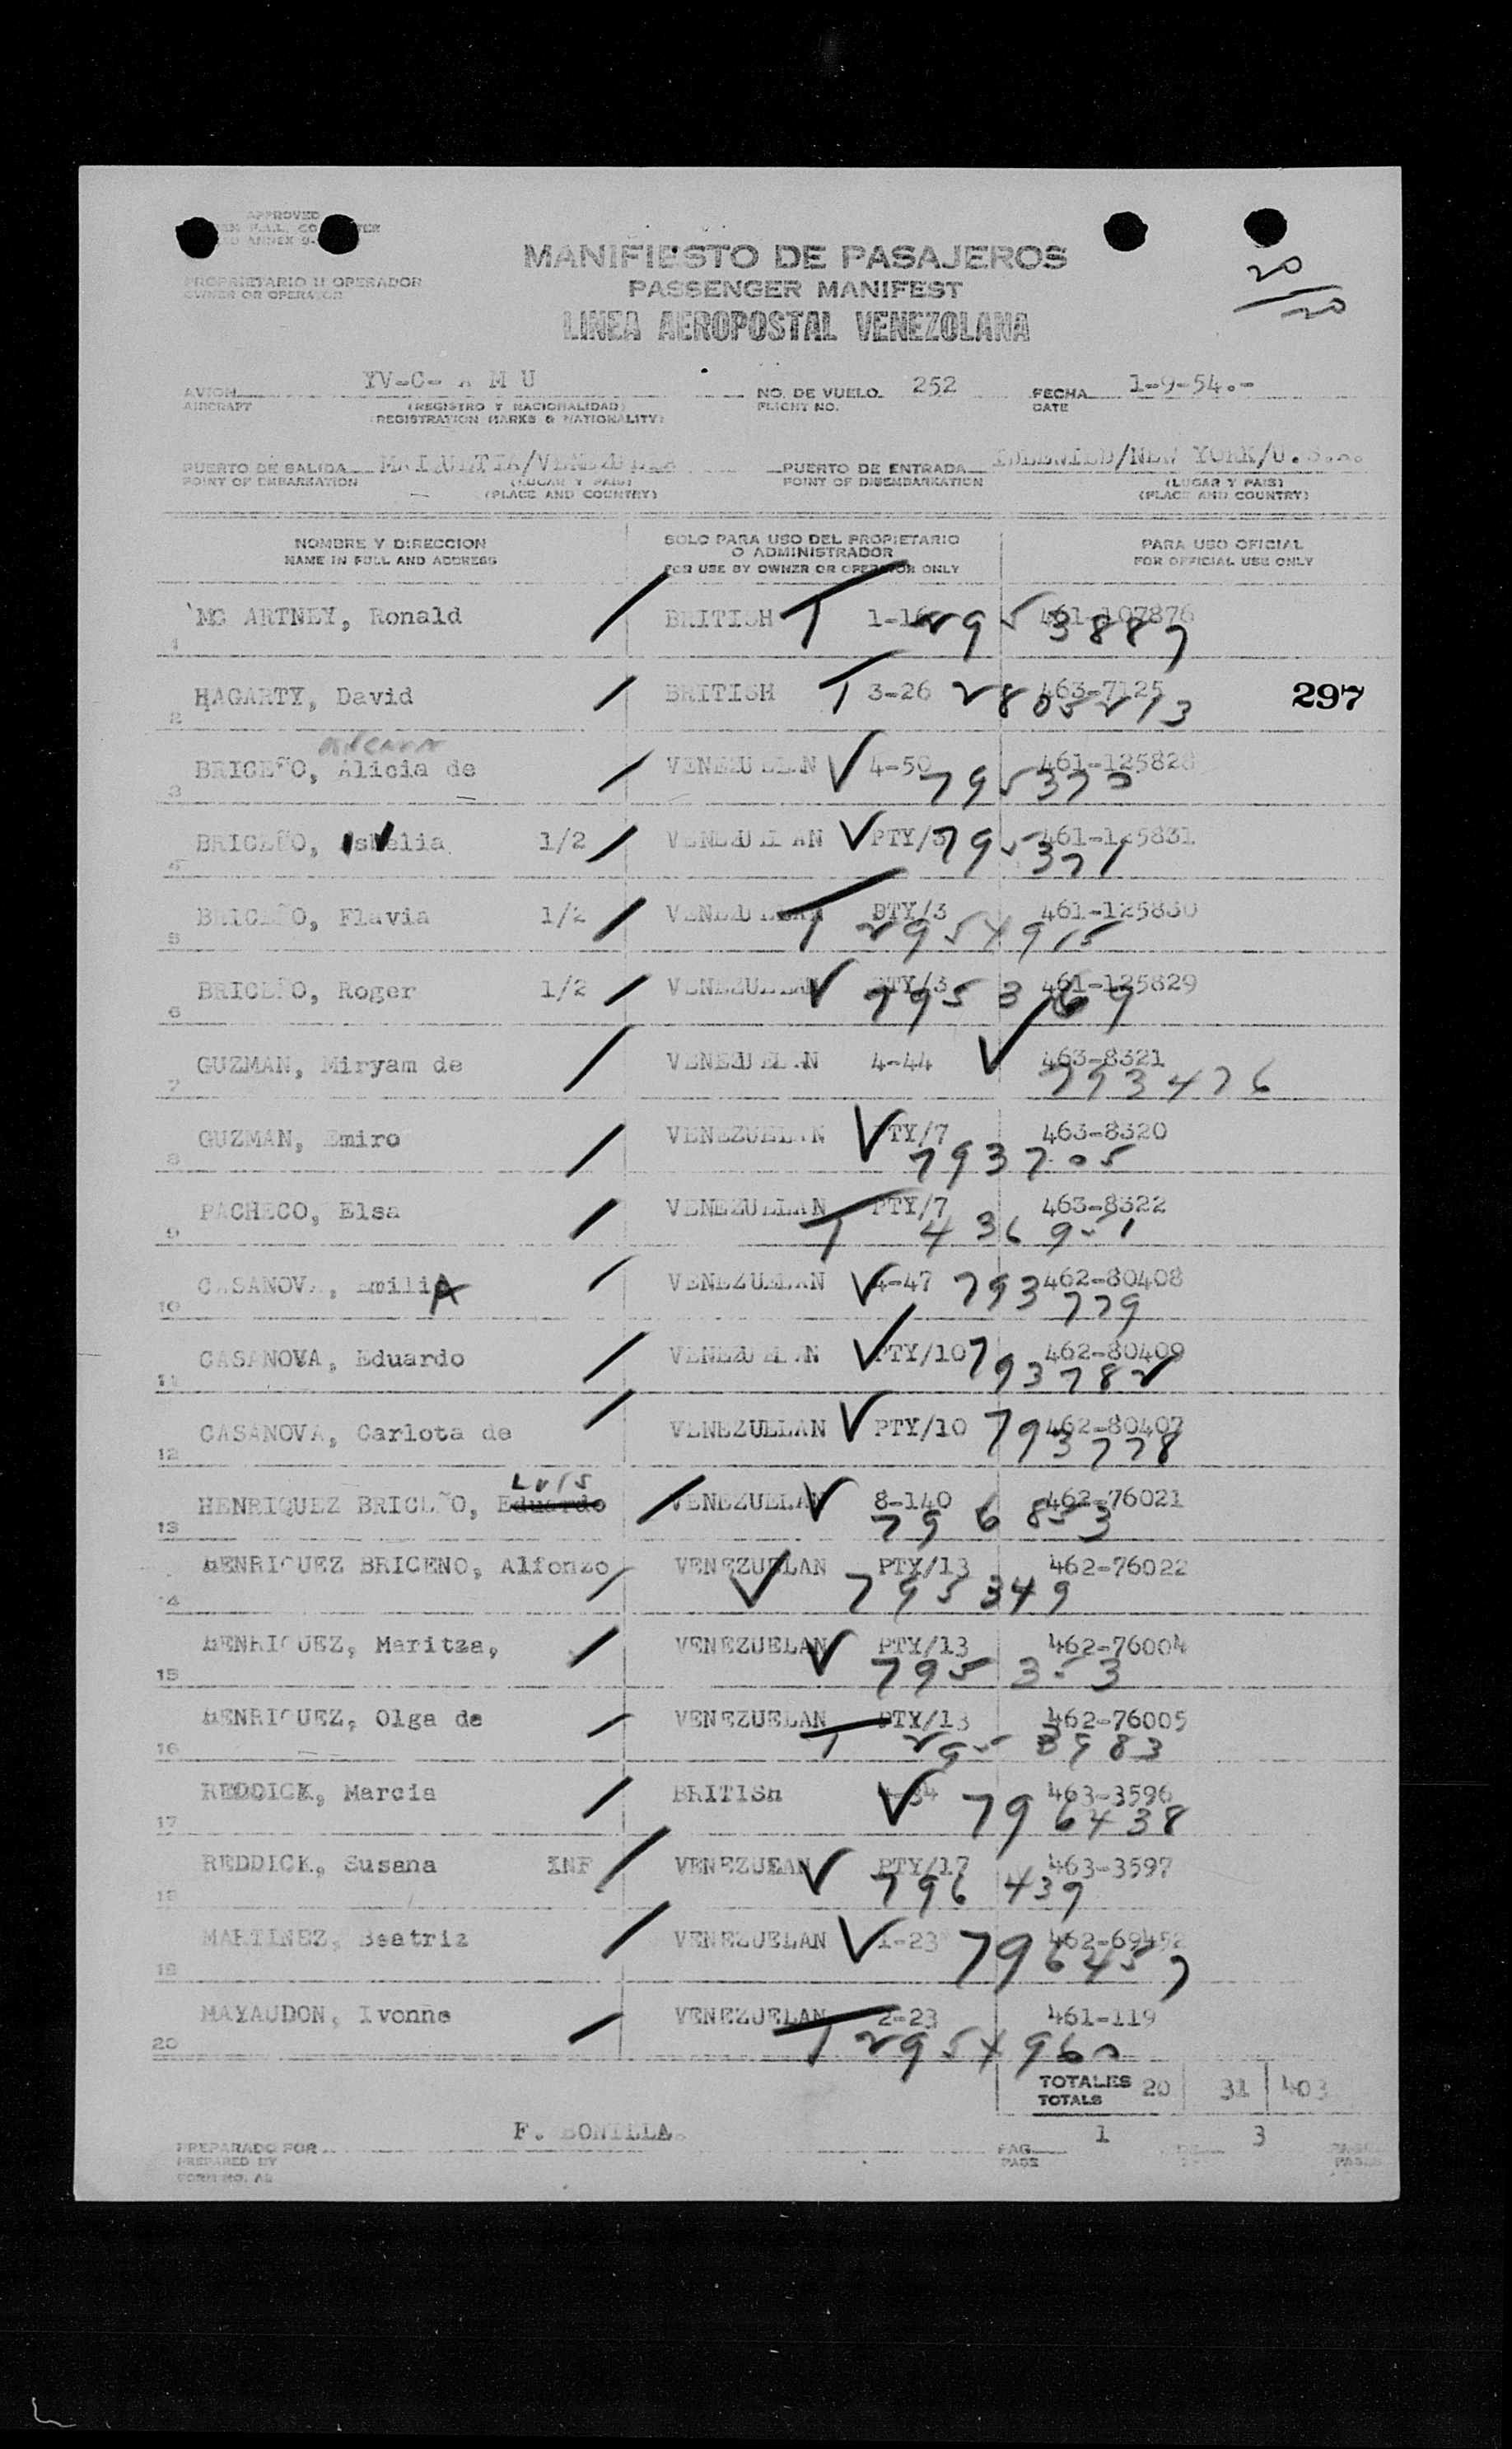 APPROVED
MANIFIESTO DE PASAJEROS
PASSENGER MANIFEST
LINEA AEROPOSTAL VENEZOLANA
20
20
PROPRIETARIO U OPERADOR
OWNER OR OPERATOR
AVION YV-C- A M U NO. DE VUELO 252 FECHA 1-9-54.-
AIRCRAFT (REGISTRO Y NACIONALIDAD) FLIGHT NO. DATE
(REGISTRATION MARKS & NATIONALITY)
PUERTO DE SALIDA MAIQUETIA/VENEZUELA PUERTO DE ENTRADA IDLEWILD/NEW YORK/U.S.A.
POINT OF EMBARKATION (LUGAR Y PAIS) POINT OF DISEMBARKATION (LUGAR Y PAIS)
(PLACE AND COUNTRY) (PLACE AND COUNTRY)
NOMBRE Y DIRECCION SOLO PARA USO DEL PROPIETARIO O ADMINISTRADOR PARA USO OFICIAL
NAME IN FULL AND ADDRESS FOR USE BY OWNER OR OPERATOR ONLY FOR OFFICIAL USE ONLY
1 ARTNEY, Ronald BRITISH T 1-16 461-107876
2 HAGARTY, David BRITISH T 3-26 463-7125 297
2805213
3 BRICEÑO, Alicia de VENEZUELAN 4-50 461-125828
795370
4 BRICEÑO, 1/2 VENEZUELAN PTY/3 461-125831
795371
5 BRICEÑO, Flavia 1/2 VENEZUELAN T PTY/3 461-125830
2954915
6 BRICEÑO, Roger 1/2 VENEZUELAN PTY/3 461-125829
795369
7 GUZMAN, Miryam de VENEZUELAN 4-44 463-8321
793476
8 GUZMAN, Emiro VENEZUELAN PTY/7 463-8320
793705
9 PACHECO, Elsa VENEZUELAN T PTY/7 463-8322
436951
10 CASANOVA, EmiliA VENEZUELAN 4-47 462-80408
793779
11 CASANOVA, Eduardo VENEZUELAN PTY/10 462-80409
793782
12 CASANOVA, Carlota de VENEZUELAN PTY/10 462-80407
793778
LUIS
13 HENRIQUEZ BRICEÑO, Eduardo VENEZUELAN 8-140 462-76021
796853
14 HENRIQUEZ BRICENO, Alfonzo VENEZUELAN PTY/13 462-76022
795349
15 HENRIQUEZ, Maritza, VENEZUELAN PTY/13 462-76004
795353
16 HENRIQUEZ, Olga de VENEZUELAN T PTY/13 462-76005
2953983
17 REDDICK, Marcia BRITISH 463-3596
796438
18 REDDICK, Susana INF VENEZUEAN PTY/17 463-3597
796439
19 MARTINEZ, Beatriz VENEZUELAN 1-23 462-69452
796457
20 MAYAUDON, Ivonne VENEZUELAN T 2-23 461-119
2954960
TOTALES 20 31 403
TOTALS
F. BONILLA.
PREPARADO POR PAG. 1 3
PREPARED BY PAGE
FORM NO.